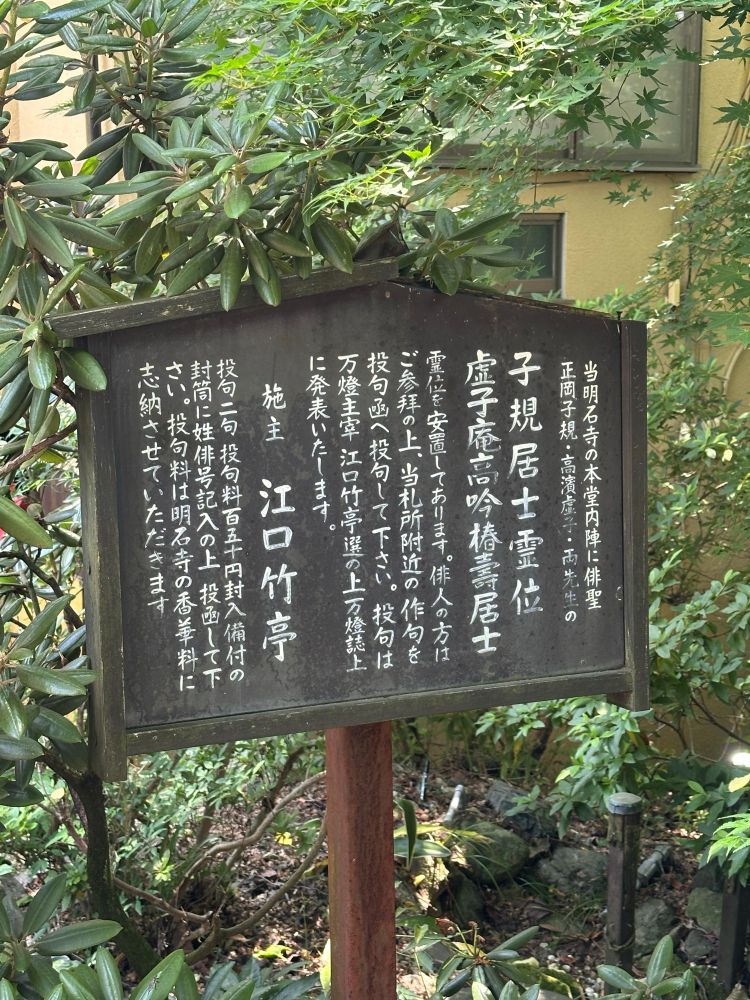 当明石寺の本堂内陣に俳聖
正岡子規・高濱虚子・両先生の
子規居士霊位
虚子庵高吟椿壽居士
霊位を安置してあります。俳人の方は
ご参拝の上、当札所附近の作句を
投句函へ投句して下さい。投句は
万燈主宰 江口竹亭選の上万燈誌上
に発表いたします。
施主 江口竹亭
投句二句 投句料百五十円封入備付の
封筒に姓俳号記入の上 投函して下
さい。投句料は明石寺の香華料に
志納させていただきます